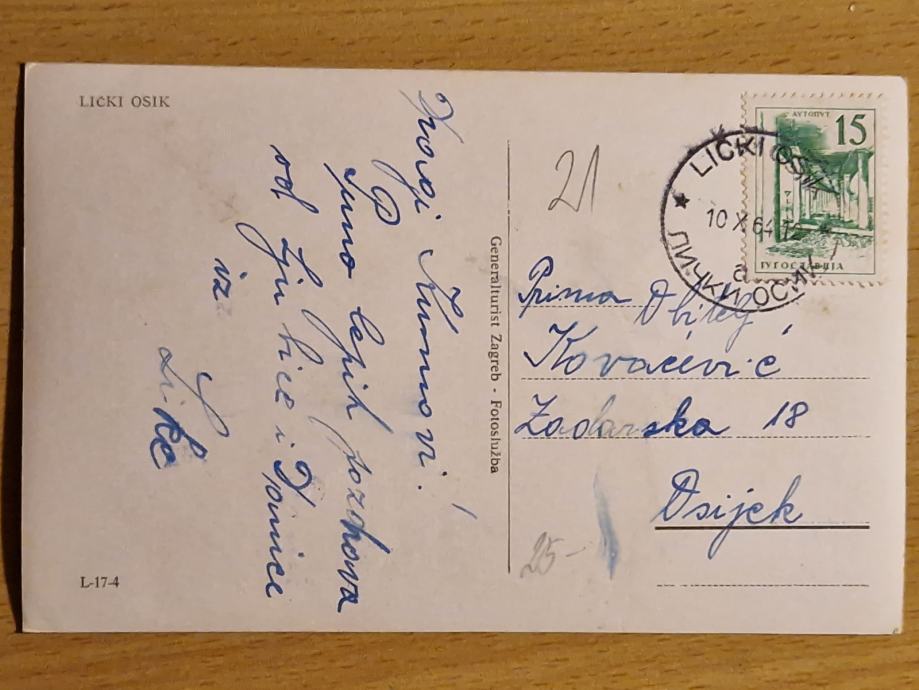 LIČKI OSIK
Dragi Kumovi!
P
Puno lepih pozdrava
od Ljubice i Danice
iz
Like
L-17-4
Generalturist Zagreb - Fotoslužba
21
25-
АУТОПУТ
15
ЈУГОСЛАВИЈА
LIČKI OSIK
10 X 64 12
a
ЛИЧКИ ОСИК
Prima Obitelj
Kovačević
Zadarska 18
Osijek